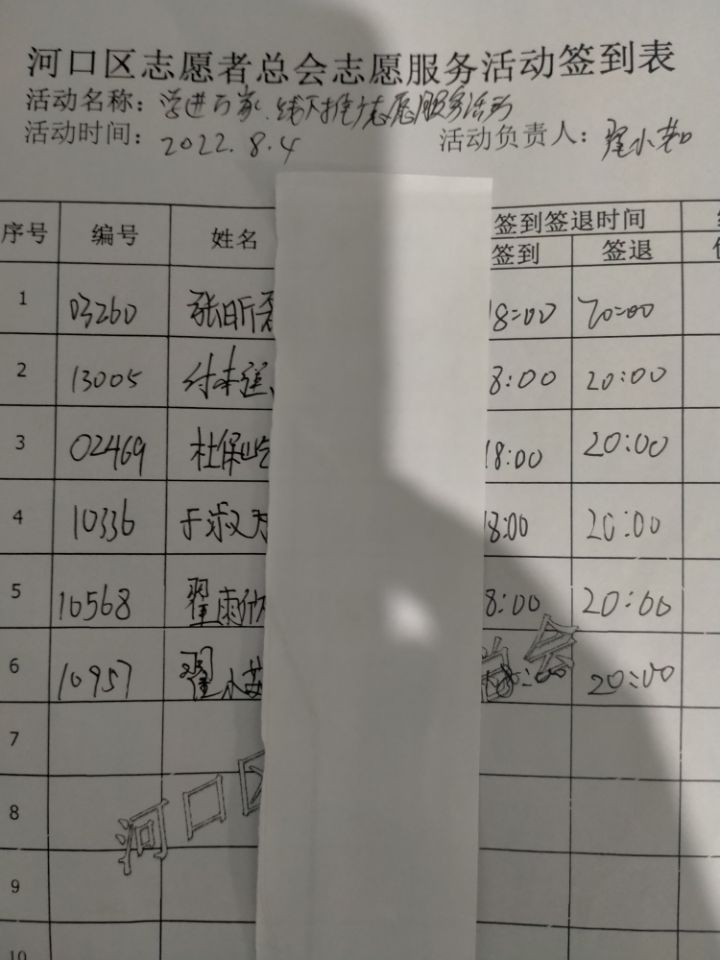 河口区志愿者总会志愿服务活动签到表
活动名称：学进万家、线下推广志愿服务活动
活动时间：2022.8.4 活动负责人：翟小茹
序号 编号 姓名 签到签退时间
签到 签退
1 03260 张昕 18:00 20:00
2 13005 付本 8:00 20:00
3 02469 杜保 18:00 20:00
4 10336 于淑 18:00 20:00
5 10568 翟雨 8:00 20:00
6 10957 翟小茹 20:00
7
8
9
10
河口区 总会